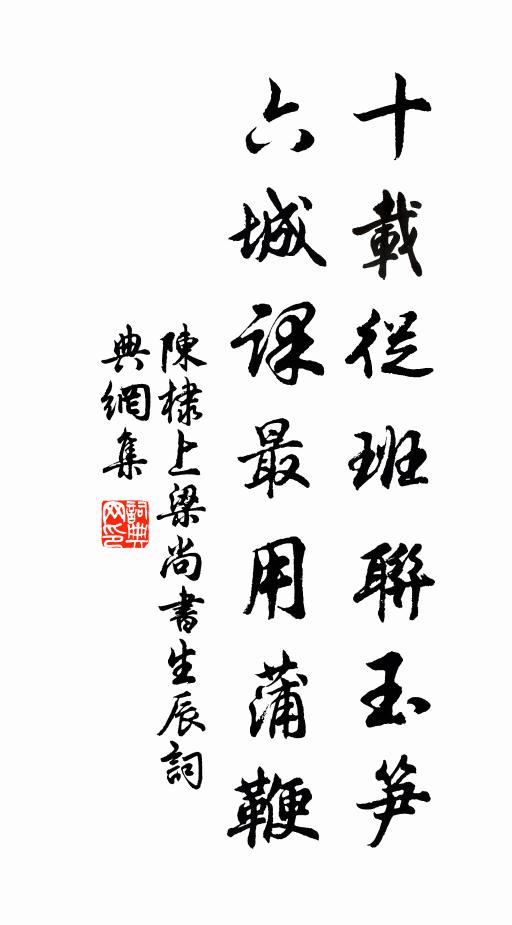 十載從班聯玉笋
六城課最用蒲鞭
陳棣上梁尚書生辰詞
典網集
詞典網印